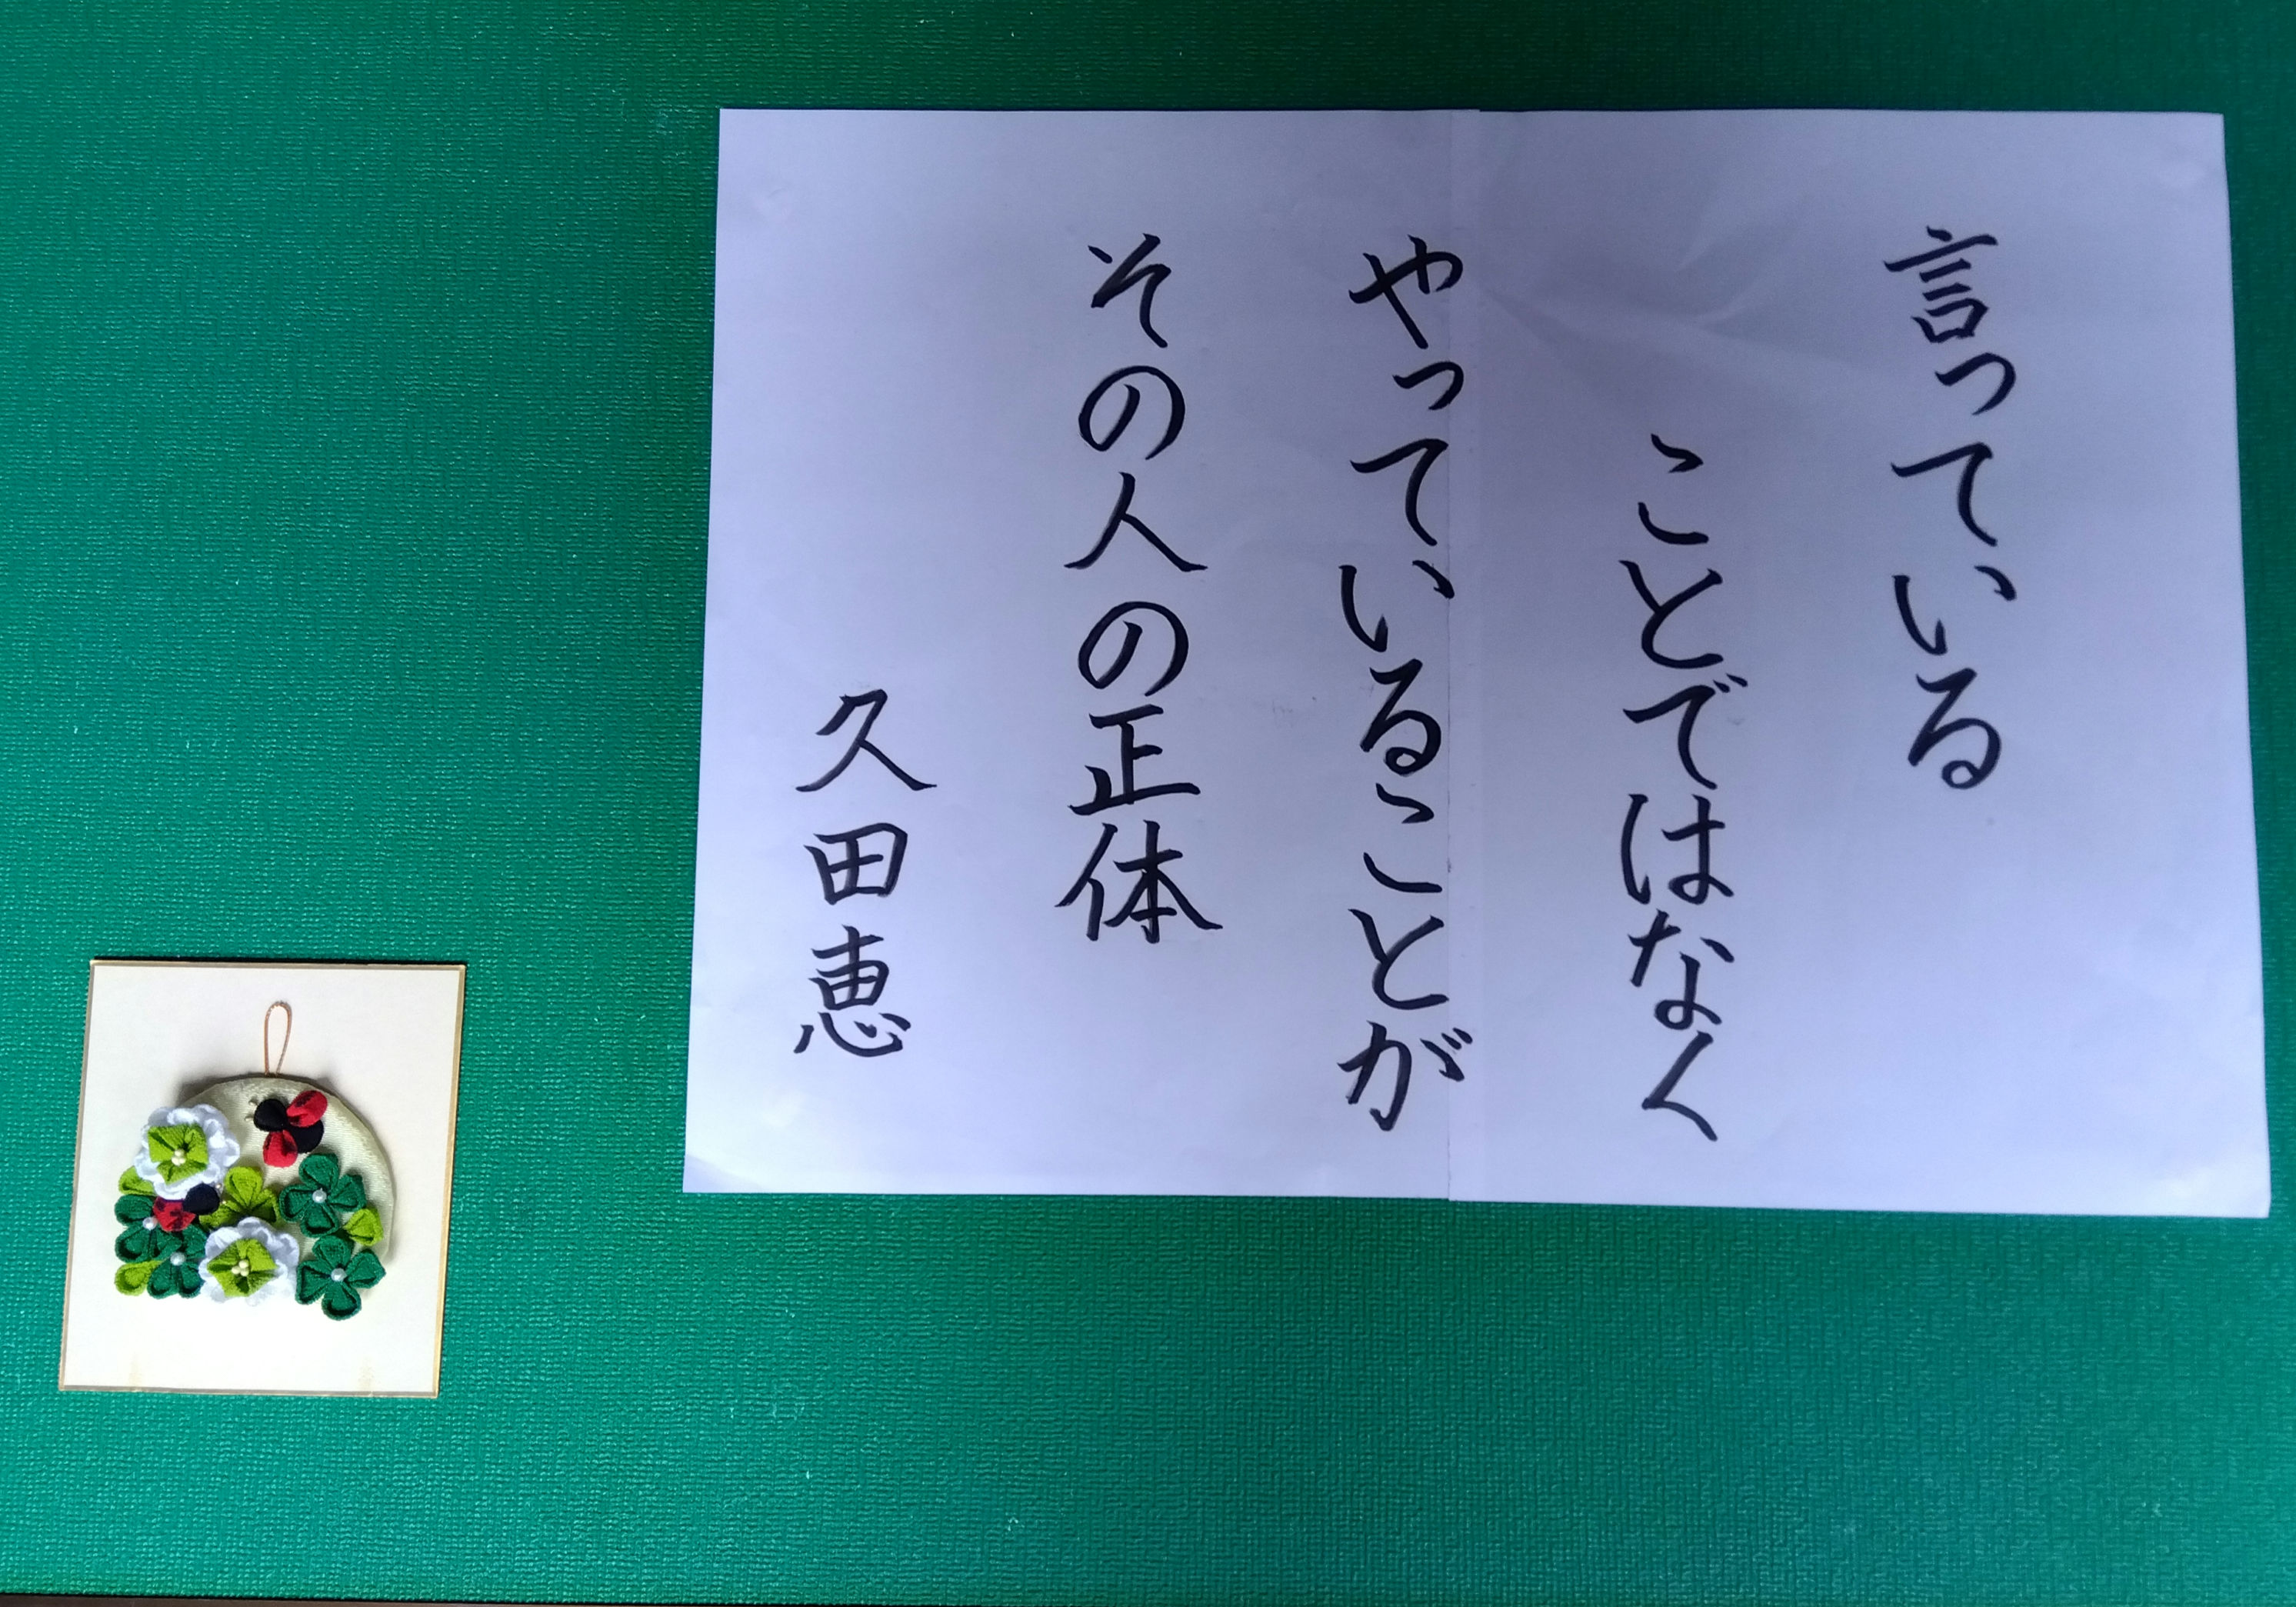 言っている
ことではなく
やっていることが
その人の正体
久田恵